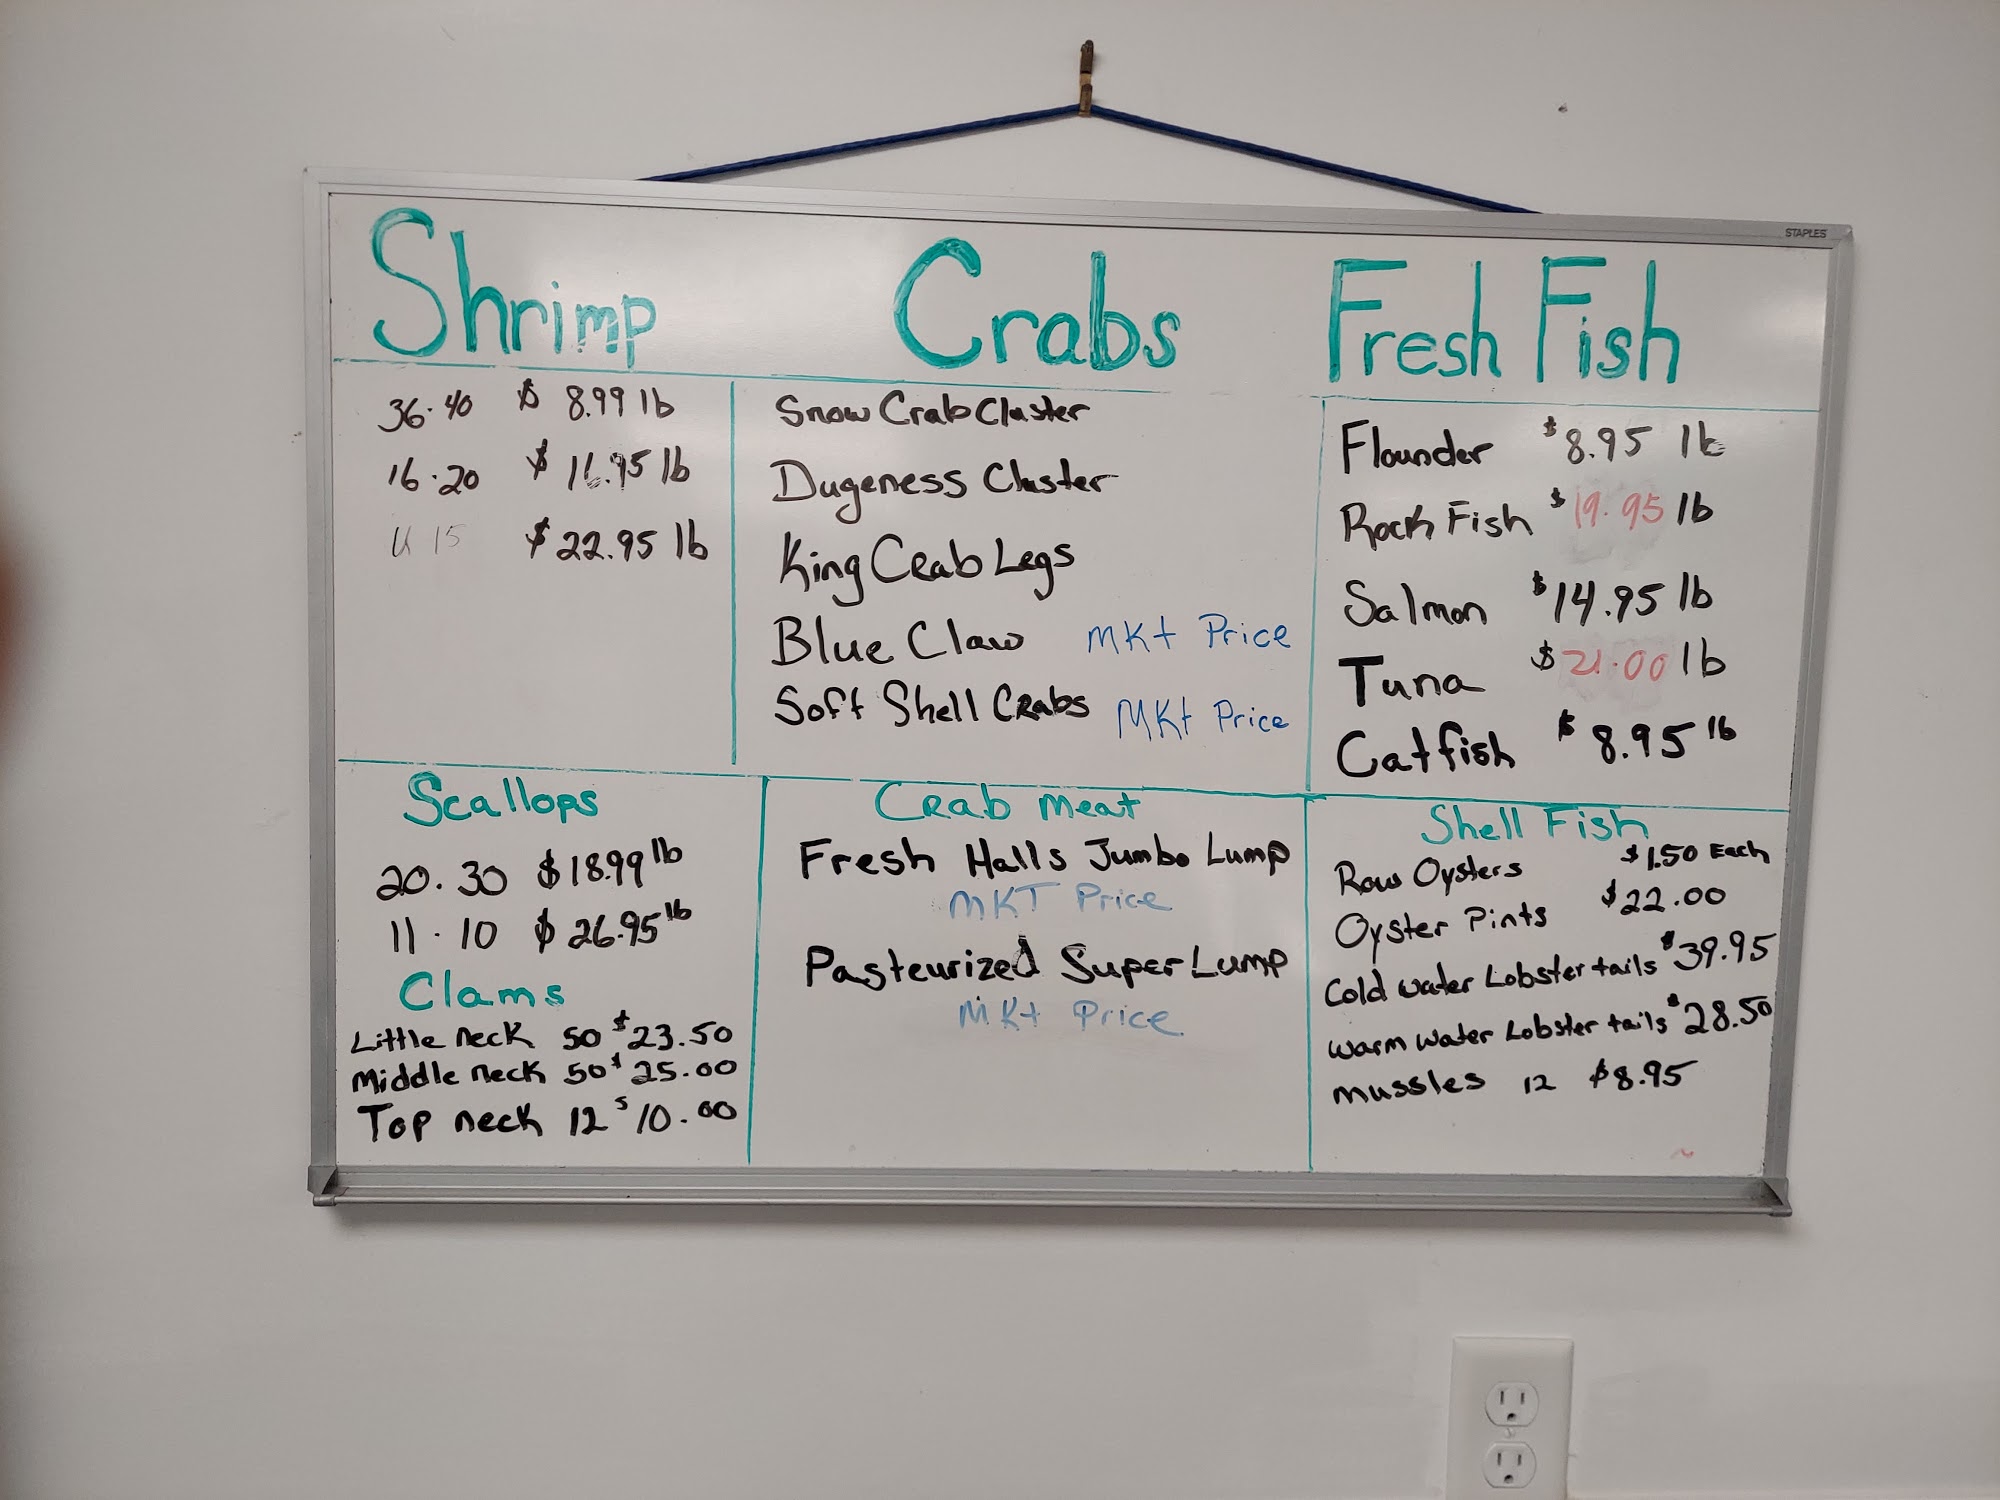 STAPLES
Shrimp
36·40 $ 8.99 lb
16·20 $ 16.95 lb
U 15 $22.95 lb
Crabs
Snow Crab Cluster
Dugeness Cluster
King Crab Legs
Blue Claw MKt Price
Soft Shell Crabs MKt Price
Fresh Fish
Flounder $8.95 lb
Rock Fish $19.95 lb
Salmon $14.95 lb
Tuna $21.00 lb
Catfish $8.95 lb
Scallops
20·30 $18.99 lb
11·10 $26.95 lb
Clams
Little neck 50 $23.50
Middle neck 50 $25.00
Top neck 12 $10.00
Crab meat
Fresh Halls Jumbo Lump
MKT Price
Pasteurized Super Lump
MKt Price
Shell Fish
Raw Oysters $1.50 Each
Oyster Pints $22.00
Cold water Lobster tails $39.95
warm water Lobster tails $28.50
mussles 12 $8.95